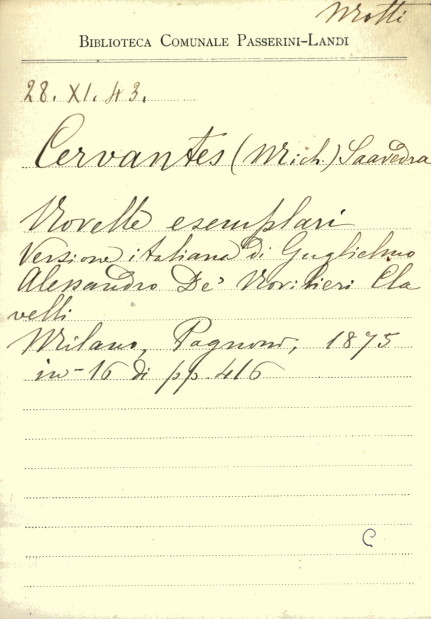 Motti
BIBLIOTECA COMUNALE PASSERINI-LANDI
28. XI. 43.
Cervantes (Mich.) Saavedra
Novelle esemplari
Versione italiana di Guglielmo
Alessandro De' Novilieri Cla
velli
Milano, Pagnoni, 1875
in-16 di pp. 416
C